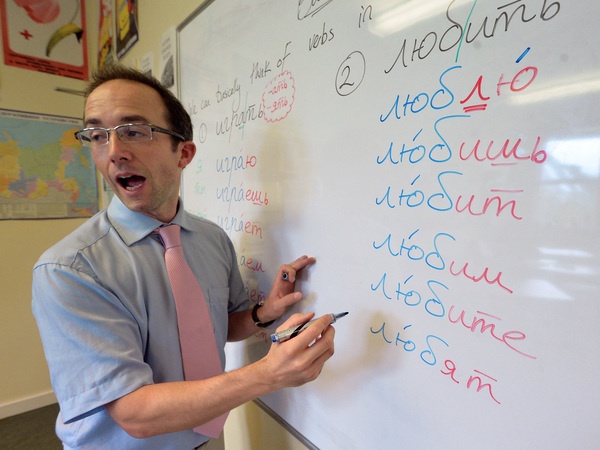 We can basically think of verbs in
① играть
-ать
-ять
играю
играешь
играет
② любить
люблю́
лю́бишь
лю́бит
лю́бим
лю́бите
лю́бят